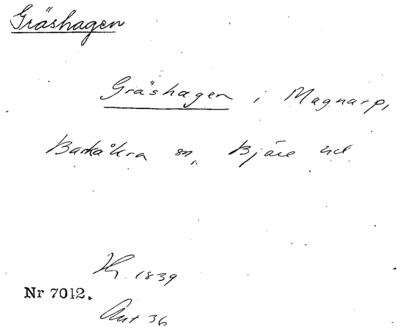 Gräshagen
Gräshagen i Magnarp,
Barkåkra sn, Bjäre hd
Hf. 1839
Nr 7012.
Ant 36